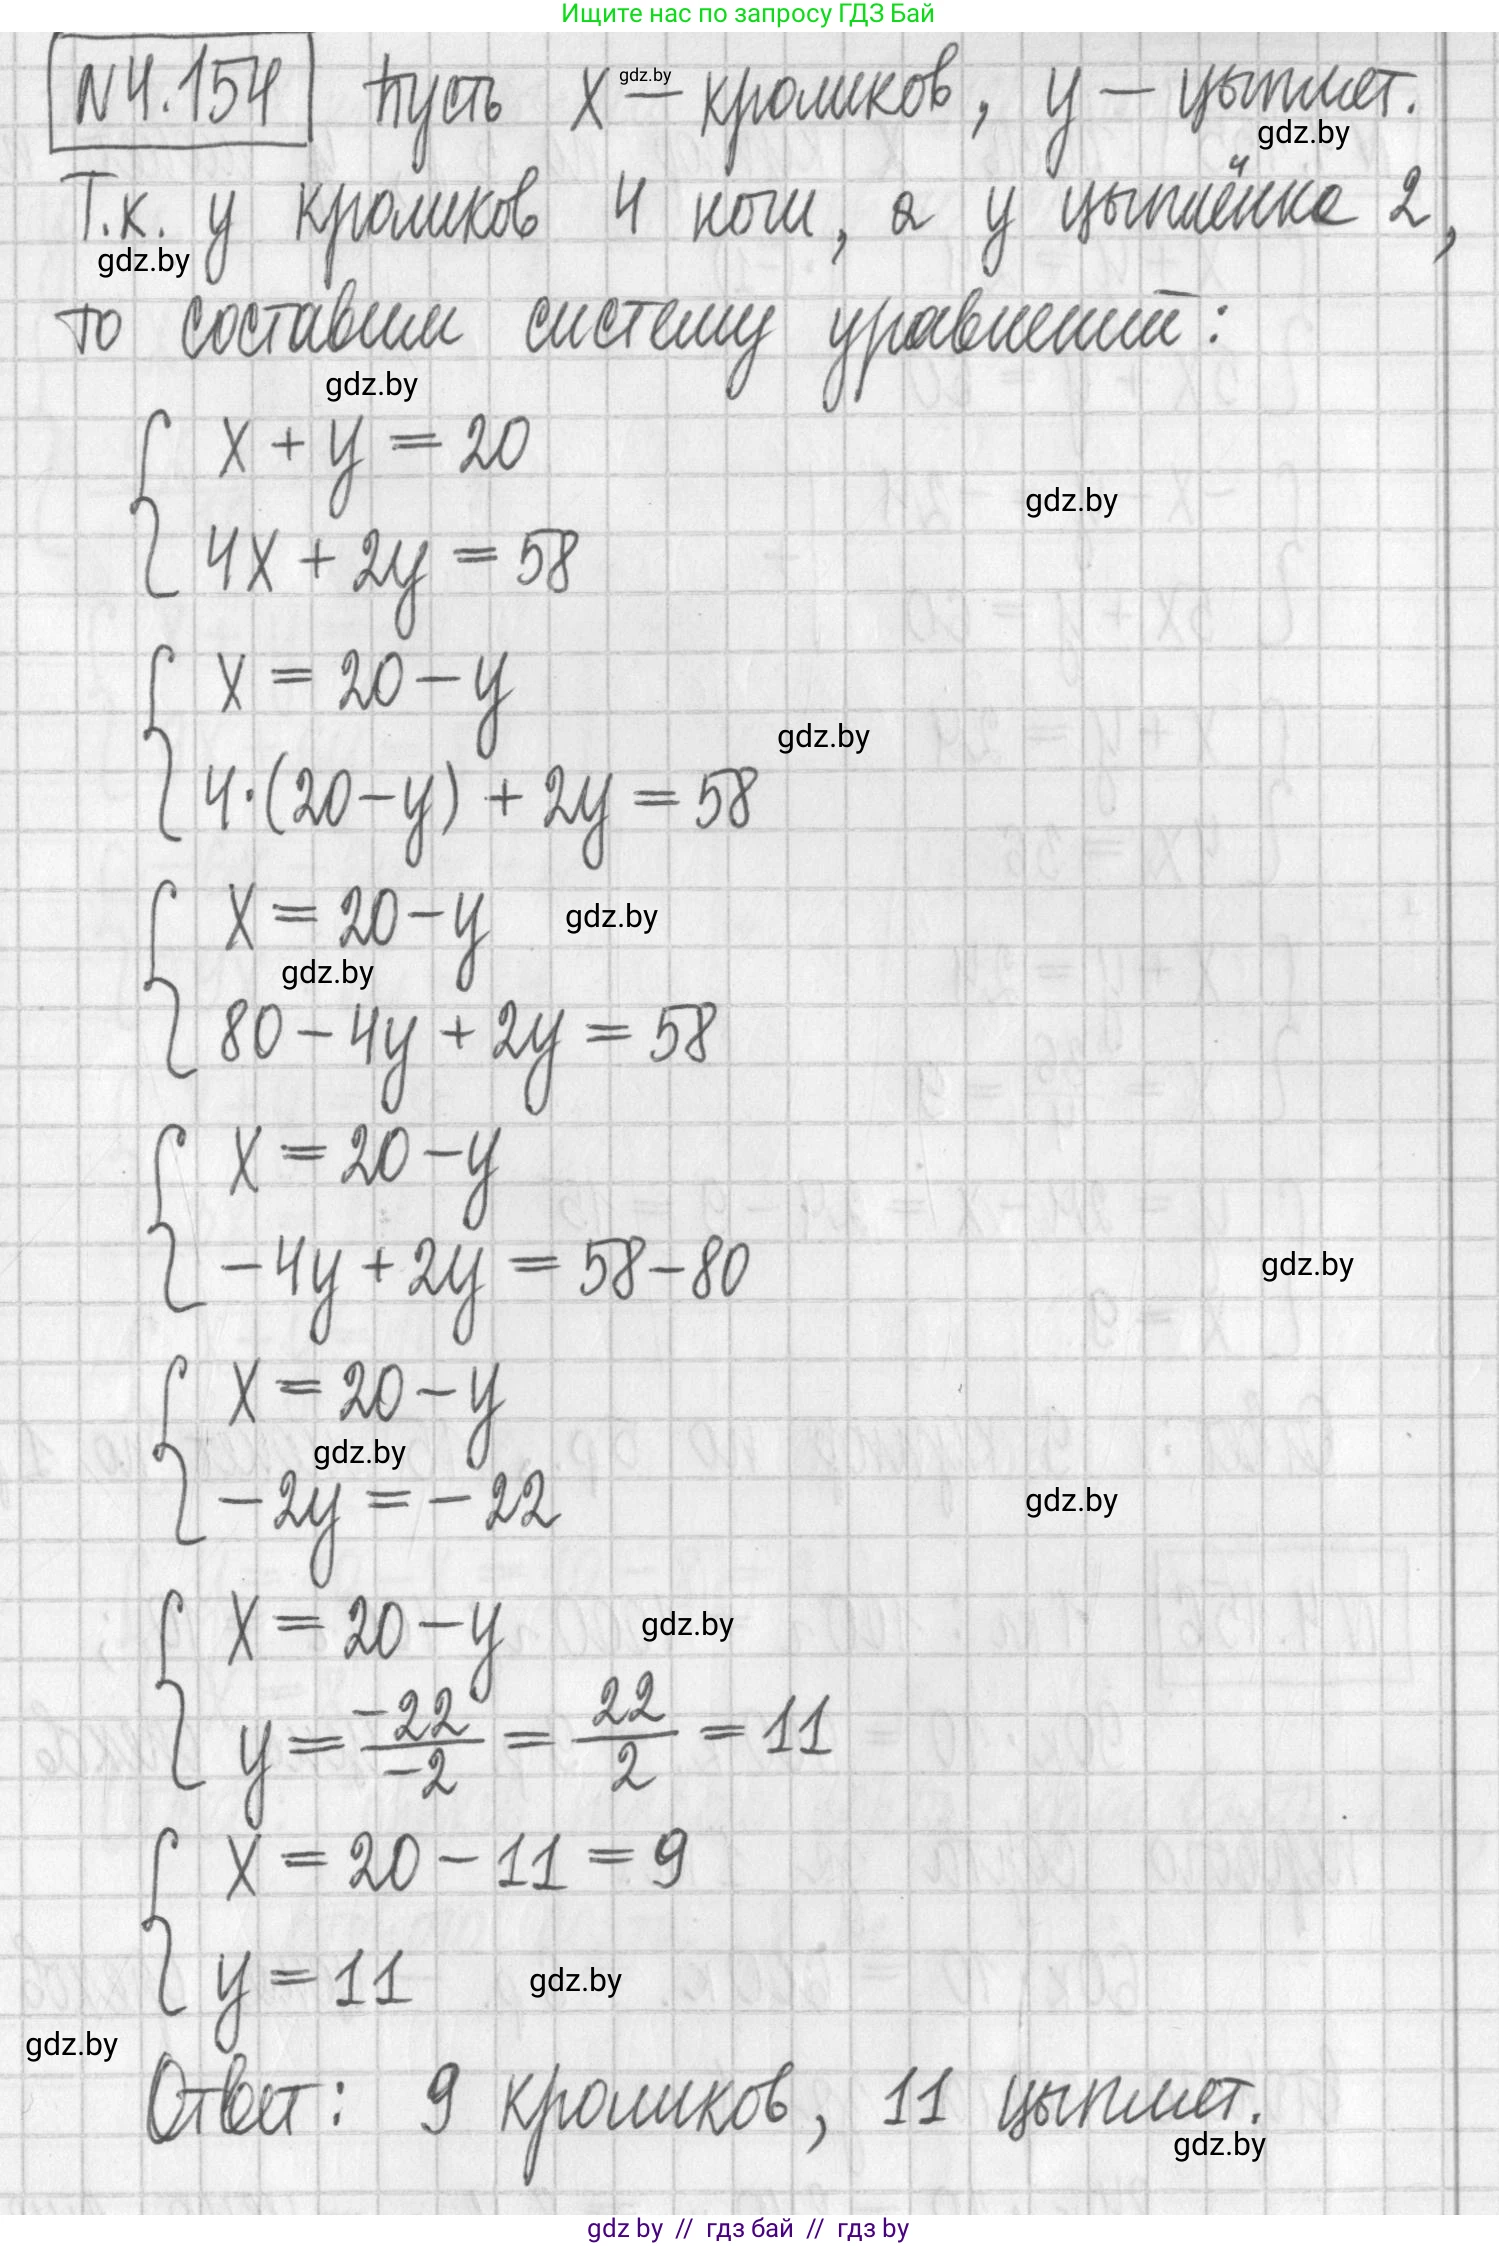 Ищите нас по запросу ГДЗ Бай
N4.154 Пусть x — кроликов, y — цыплят.
gdz.by
gdz.by
Т.к. у кроликов 4 ноги, а у цыплёнка 2,
gdz.by
то составим систему уравнений:
gdz.by
x + y = 20
gdz.by
4x + 2y = 58
x = 20 - y
gdz.by
4·(20-y) + 2y = 58
x = 20 - y
gdz.by
gdz.by
80 - 4y + 2y = 58
x = 20 - y
-4y + 2y = 58 - 80
gdz.by
x = 20 - y
gdz.by
-2y = -22
gdz.by
x = 20 - y
gdz.by
y = -22/-2 = 22/2 = 11
x = 20 - 11 = 9
y = 11
gdz.by
gdz.by
Ответ: 9 кроликов, 11 цыплят.
gdz.by
gdz by // гдз бай // гдз by